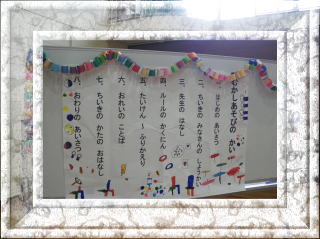 むかしあそびの かい
一、はじめの あいさつ
二、ちいきの みなさんの しょうかい
三、先生の はなし
四、ルールの かくにん
五、たいけん ～ふりかえり
六、おれいの ことば
七、ちいきの かたの おはなし
八、おわりの あいさつ